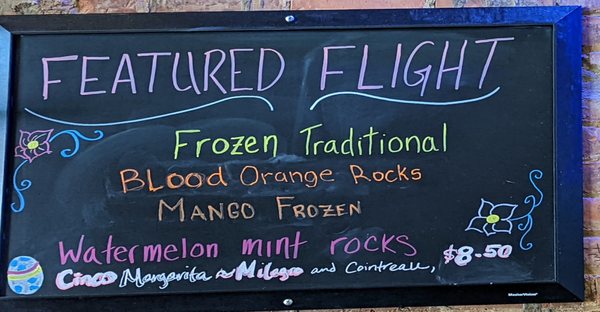 FEATURED FLIGHT
Frozen Traditional
BLood Orange Rocks
MANGO FROZEN
Watermelon mint rocks
Cinco Margarita ~ Milagro and Cointreau, $8.50
MasterVision